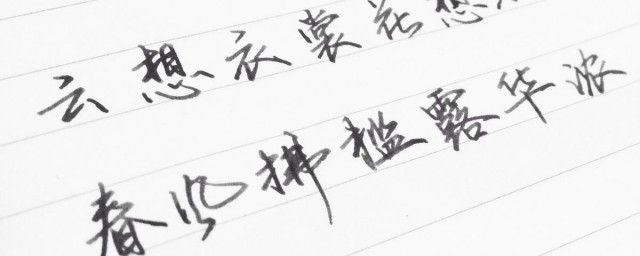 云想衣裳花想
春风拂槛露华浓